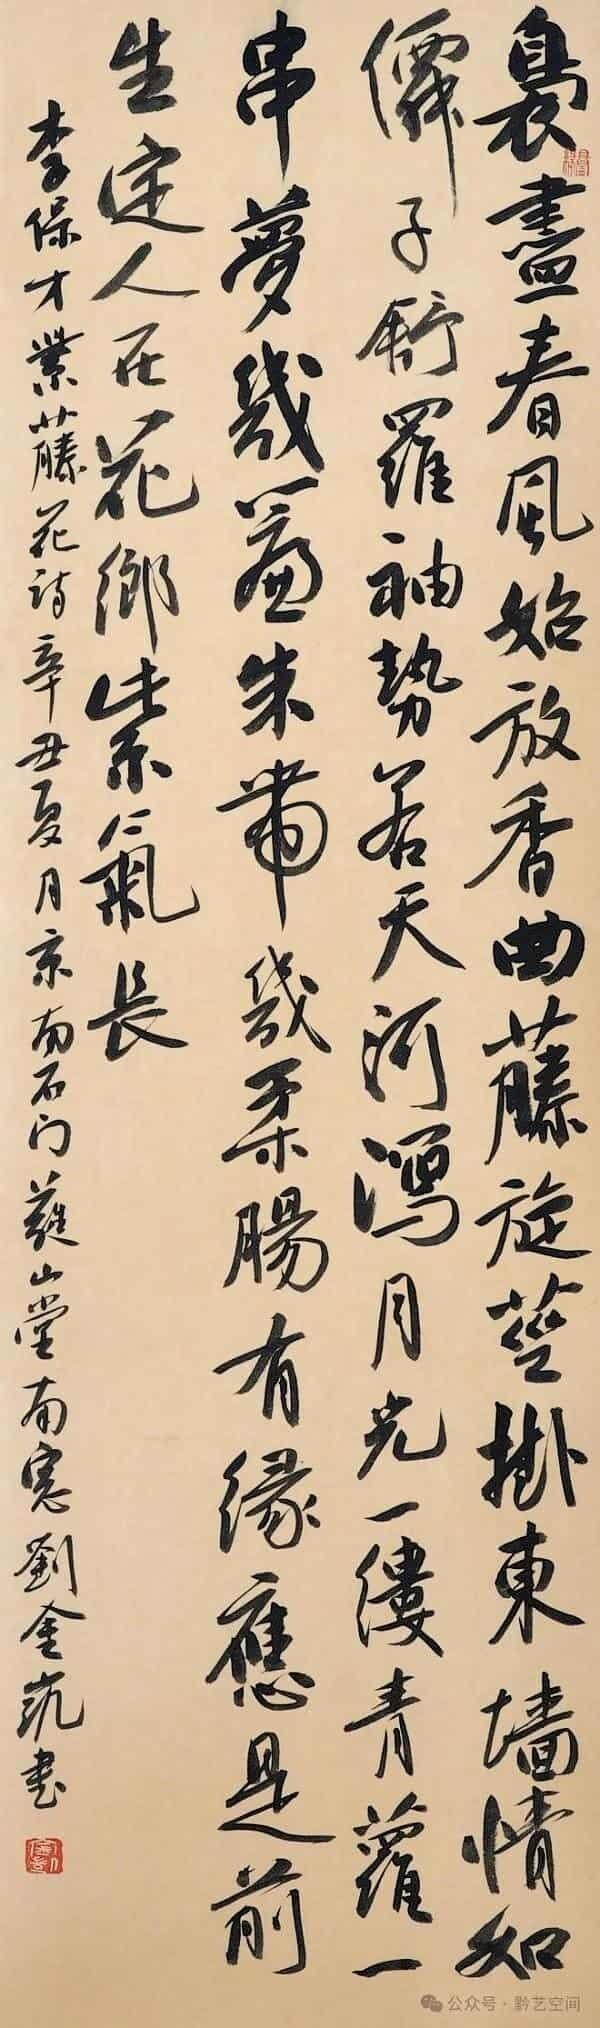 裊盡春風始放香曲藤旋莖掛東墻情如
僊子舒羅袖勢若天河瀉月光一縷青蘿一
串夢幾簾朱帶幾柔腸有緣應是前
生定人在花鄉紫氣長
李保才紫藤花詩辛丑夏月京南石门蕤山堂南窓劉金凱書
公众号·黔艺空间